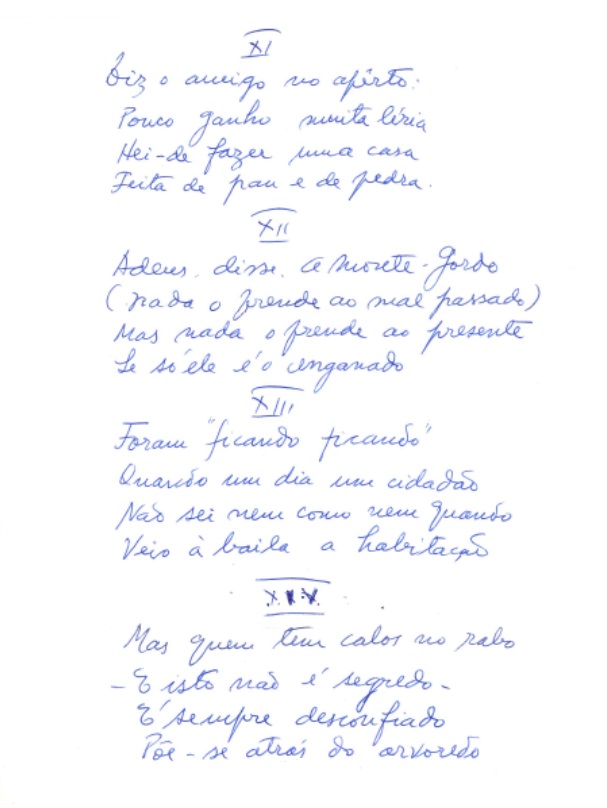 XI
Diz o amigo no apêrto:
Pouco ganho muita léria
Hei-de fazer uma casa
Feita de pau e de pedra.
XII
Adeus, disse, a Monte-Gordo
(Nada o prende ao mal passado)
Mas nada o prende ao presente
Se só ele é o enganado
XIII
Foram "ficando ficando"
Quando um dia um cidadão
Não sei nem como nem quando
Veio à baila a habitação
XIV
Mas quem tem calos no rabo
- E isto não é segredo -
É sempre desconfiado
Põe-se atrás do arvoredo